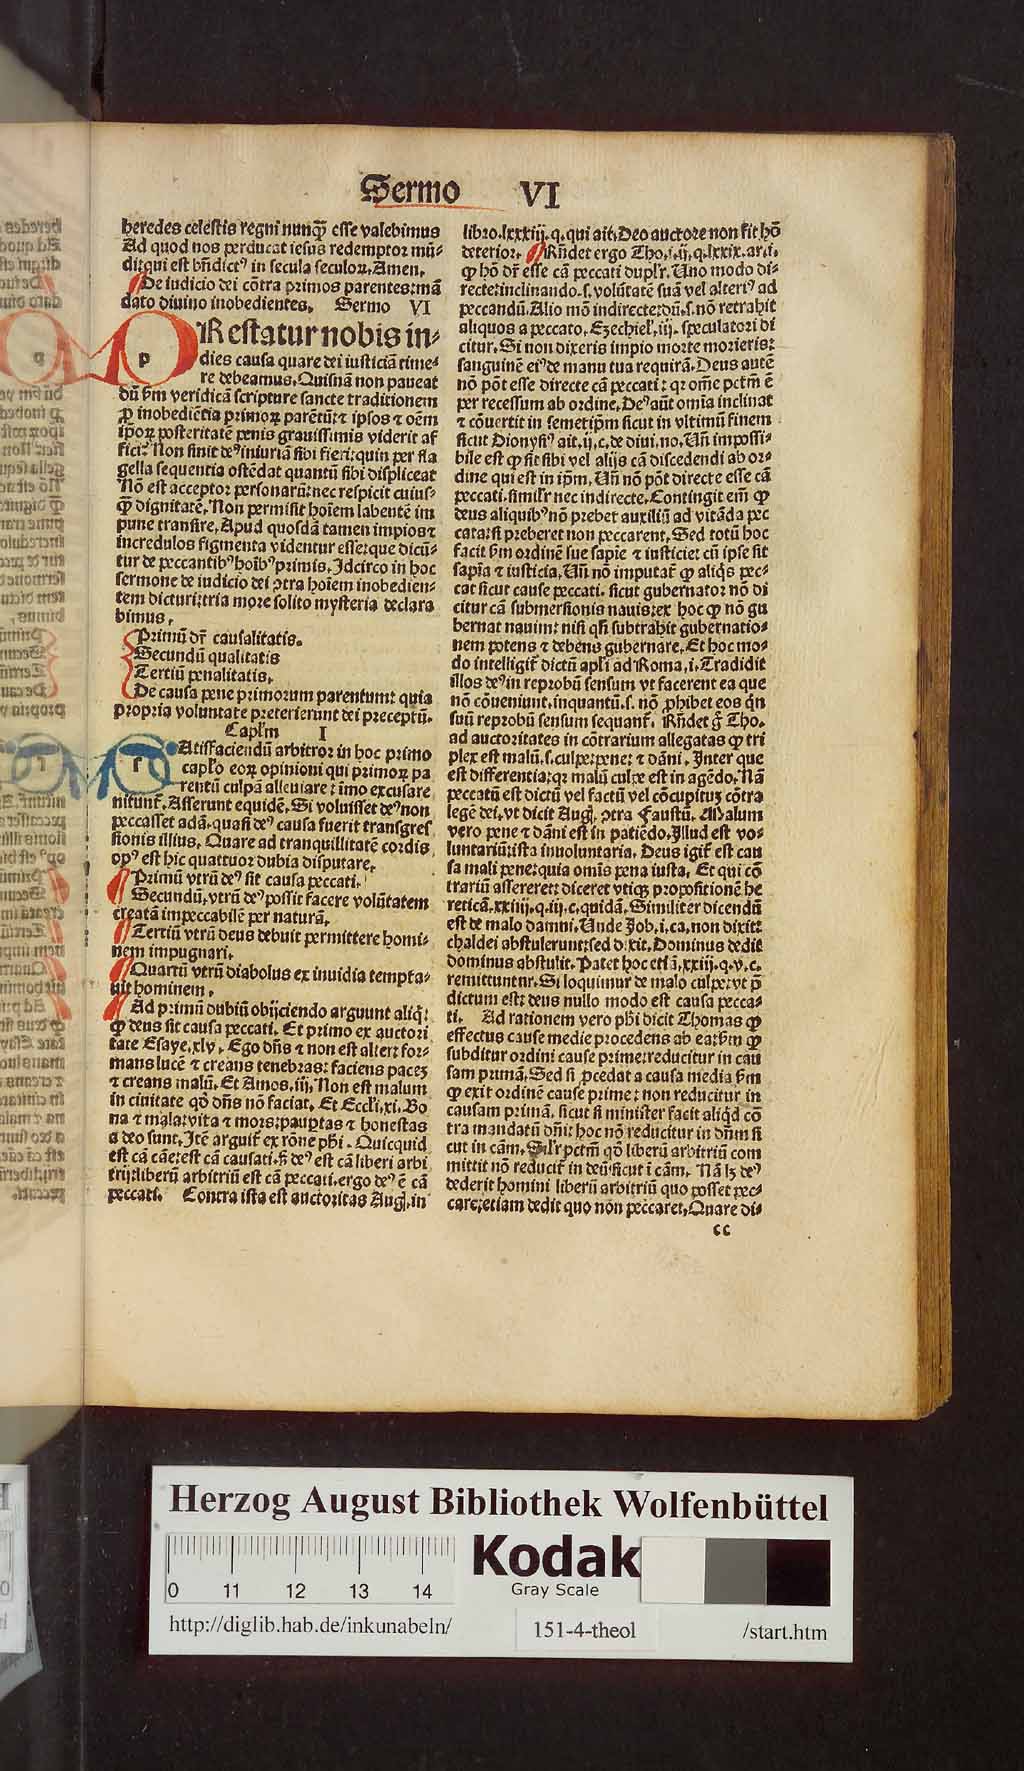 Sermo VI
heredes celestis regni nunq̃ esse valebimus
Ad quod nos perducat iesus redemptor mũ-
di:qui est bñdictꝰ in secula seculoꝝ. Amen.
De iudicio dei cõtra primos parentes:mã
dato diuino inobedientes. Sermo VI
PRestatur nobis in-
dies causa quare dei iusticiã time-
re debeamus. Quisnã non paueat
dũ ẜm veridicã scripture sancte traditionem
ꝓ inobediẽtia primoꝝ parẽtũ:⁊ ipsos ⁊ oẽm
ip̃oꝝ posteritatẽ penis grauissimis viderit af
fici: Non sinit deꝰ iniuriã sibi fieri:quin per fla
gella sequentia ostẽdat quantũ sibi displiceat
Nõ est acceptor personarũ:nec respicit cuius-
q̃ dignitatẽ. Non permisit hoiem labentẽ im
pune transire. Apud quosdã tamen impios ⁊
incredulos figmenta videntur esse:que dicũ-
tur de peccantibꝰ hoĩbꝰ primis. Idcirco in hoc
sermone de iudicio dei ↄtra hoiem inobedien-
tem dicturi:tria more solito mysteria declara
bimus.
Primũ dr̃ causalitatis.
Secundũ qualitatis
Tertiũ penalitatis.
De causa pene primorum parentum: quia
propria voluntate preterierunt dei preceptũ.
Caplm̃ I
SAtisfaciendũ arbitror in hoc primo
caplo eoꝝ opinioni qui primoꝝ pa
rentũ culpã alleuiare: imo excusare
nitunt̃. Asserunt equidẽ. Si voluisset deꝰ non
peccasset adã. quasi deꝰ causa fuerit transgres
sionis illius. Quare ad tranquillitatẽ cordis
opꝰ est hic quattuor dubia disputare.
Primũ vtrũ deꝰ sit causa peccati.
Secundũ. vtrũ deꝰ possit facere volũtatem
creatã impeccabilẽ per naturã.
Tertiũ vtrũ deus debuit permittere homi-
nem impugnari.
Quartũ vtrũ diabolus ex inuidia tempta-
uit hominem.
Ad primũ dubiũ obijciendo arguunt aliq̃:
ꝙ deus sit causa peccati. Et primo ex auctori
tate Esaye. xlv. Ego dñs ⁊ non est alter: for-
mans lucẽ ⁊ creans tenebras: faciens pacez
⁊ creans malũ. Et Amos. iij. Non est malum
in ciuitate qd̃ dñs nõ faciat. Et Eccli. xi. Bo
na ⁊ mala:vita ⁊ mors:paupt̃as ⁊ honestas
a deo sunt. Itẽ arguit̃ ex rõne phi. Quicquid
est cã cãe:est cã causati. ß deꝰ est cã liberi arbi
trij:liberũ arbitriũ est cã peccati. ergo deꝰ ẽ cã
peccati. Contra ista est auctoritas Aug. in
libro. lxxxiij. q. qui ait. Deo auctore non fit hõ
deterior. Rñdet ergo Tho. i. ij. q. lxxix. ar. i.
ꝙ hõ dr̃ esse cã peccati duplr̃. Uno modo di-
recte:inclinando. s. volũtatẽ suã vel alteriꝰ ad
peccandũ. Alio mõ indirecte:dũ. s. nõ retrahit
aliquos a peccato. Ezechiel. iij. speculatori di
citur. Si non dixeris impio morte morieris:
sanguinẽ eiꝰ de manu tua requirã. Deus autẽ
nõ põt esse directe cã peccati: qr om̃e pct̃m ẽ
per recessum ab ordine. Deꝰ aũt omĩa inclinat
⁊ cõuertit in semetip̃m sicut in vltimũ finem
sicut Dionysiꝰ ait. ij. c. de diui. no. Uñ impossi-
bile est ꝙ sit sibi vel alijs cã discedendi ab or-
dine qui est in ip̃m. Uñ nõ põt directe esse cã
peccati. similr̃ nec indirecte. Contingit em̃ ꝙ
deus aliquibꝰ nõ prebet auxiliũ ad vitãda pec
cata:si preberet non peccarent. Sed totũ hoc
facit ẜm ordinẽ sue sapiẽ ⁊ iusticie: cũ ipse sit
sapĩa ⁊ iusticia. Uñ nõ imputat̃ ꝙ aliq̃s pec-
cat sicut cause peccati. sicut gubernator nõ di
citur cã submersionis nauis:ex hoc ꝙ nõ gu
bernat nauim: nisi qñ subtrahit gubernatio-
nem potens ⁊ debens gubernare. Et hoc mo-
do intelligit̃ dictũ apl̃i ad Roma. i. Tradidit
illos deꝰ in reprobũ sensum vt facerent ea que
nõ cõueniunt. inquantũ. s. nõ ꝓhibet eos q̃n
suũ reprobũ sensum sequant̃. Rñdet g̃ Tho.
ad auctoritates in cõtrarium allegatas ꝙ tri
plex est malũ. s. culpe:pene: ⁊ dãni. Inter que
est differentia:qr malũ culpe est in agẽdo. Nã
peccatũ est dictũ vel factũ vel cõcupituz cõtra
legẽ dei. vt dicit Aug. ↄtra Faustũ. Malum
vero pene ⁊ dãni est in patiẽdo. Illud est vo-
luntariũ:ista inuoluntaria. Deus igit̃ est cau
sa mali pene:quia omĩs pena iusta. Et qui cõ
trariũ assereret: diceret vtiqꝫ propositionẽ he
reticã. xxiiij. q. iij. c. quidã. Similiter dicendũ
est de malo damni. Unde Job. i. ca. non dixit:
chaldei abstulerunt:sed dixit. Dominus dedit
dominus abstulit. Patet hoc etiã. xxiij. q. v. c.
remittuntur. Si loquimur de malo culpe: vt p̃
dictum est: deus nullo modo est causa pecca-
ti. Ad rationem vero phi dicit Thomas ꝙ
effectus cause medie procedens ab ea:ẜm ꝙ
subditur ordini cause prime:reducitur in cau
sam primã. Sed si ꝓcedat a causa media ẜm
ꝙ exit ordinẽ cause prime: non reducitur in
causam primã. sicut si minister facit aliqd̃ cõ
tra mandatũ dñi: hoc nõ reducitur in dñm si
cut in cãm. Silr̃ pct̃m qd̃ liberũ arbitriũ com
mittit nõ reducit̃ in deũ sicut ĩ cãm. Nã lꝫ deꝰ
dederit homini liberũ arbitriũ quo posset pec-
care:etiam dedit quo non peccaret. Quare di-
cc
Herzog August Bibliothek Wolfenbüttel
0 11 12 13 14
Kodak
Gray Scale
http://diglib.hab.de/inkunabeln/ 151-4-theol /start.htm